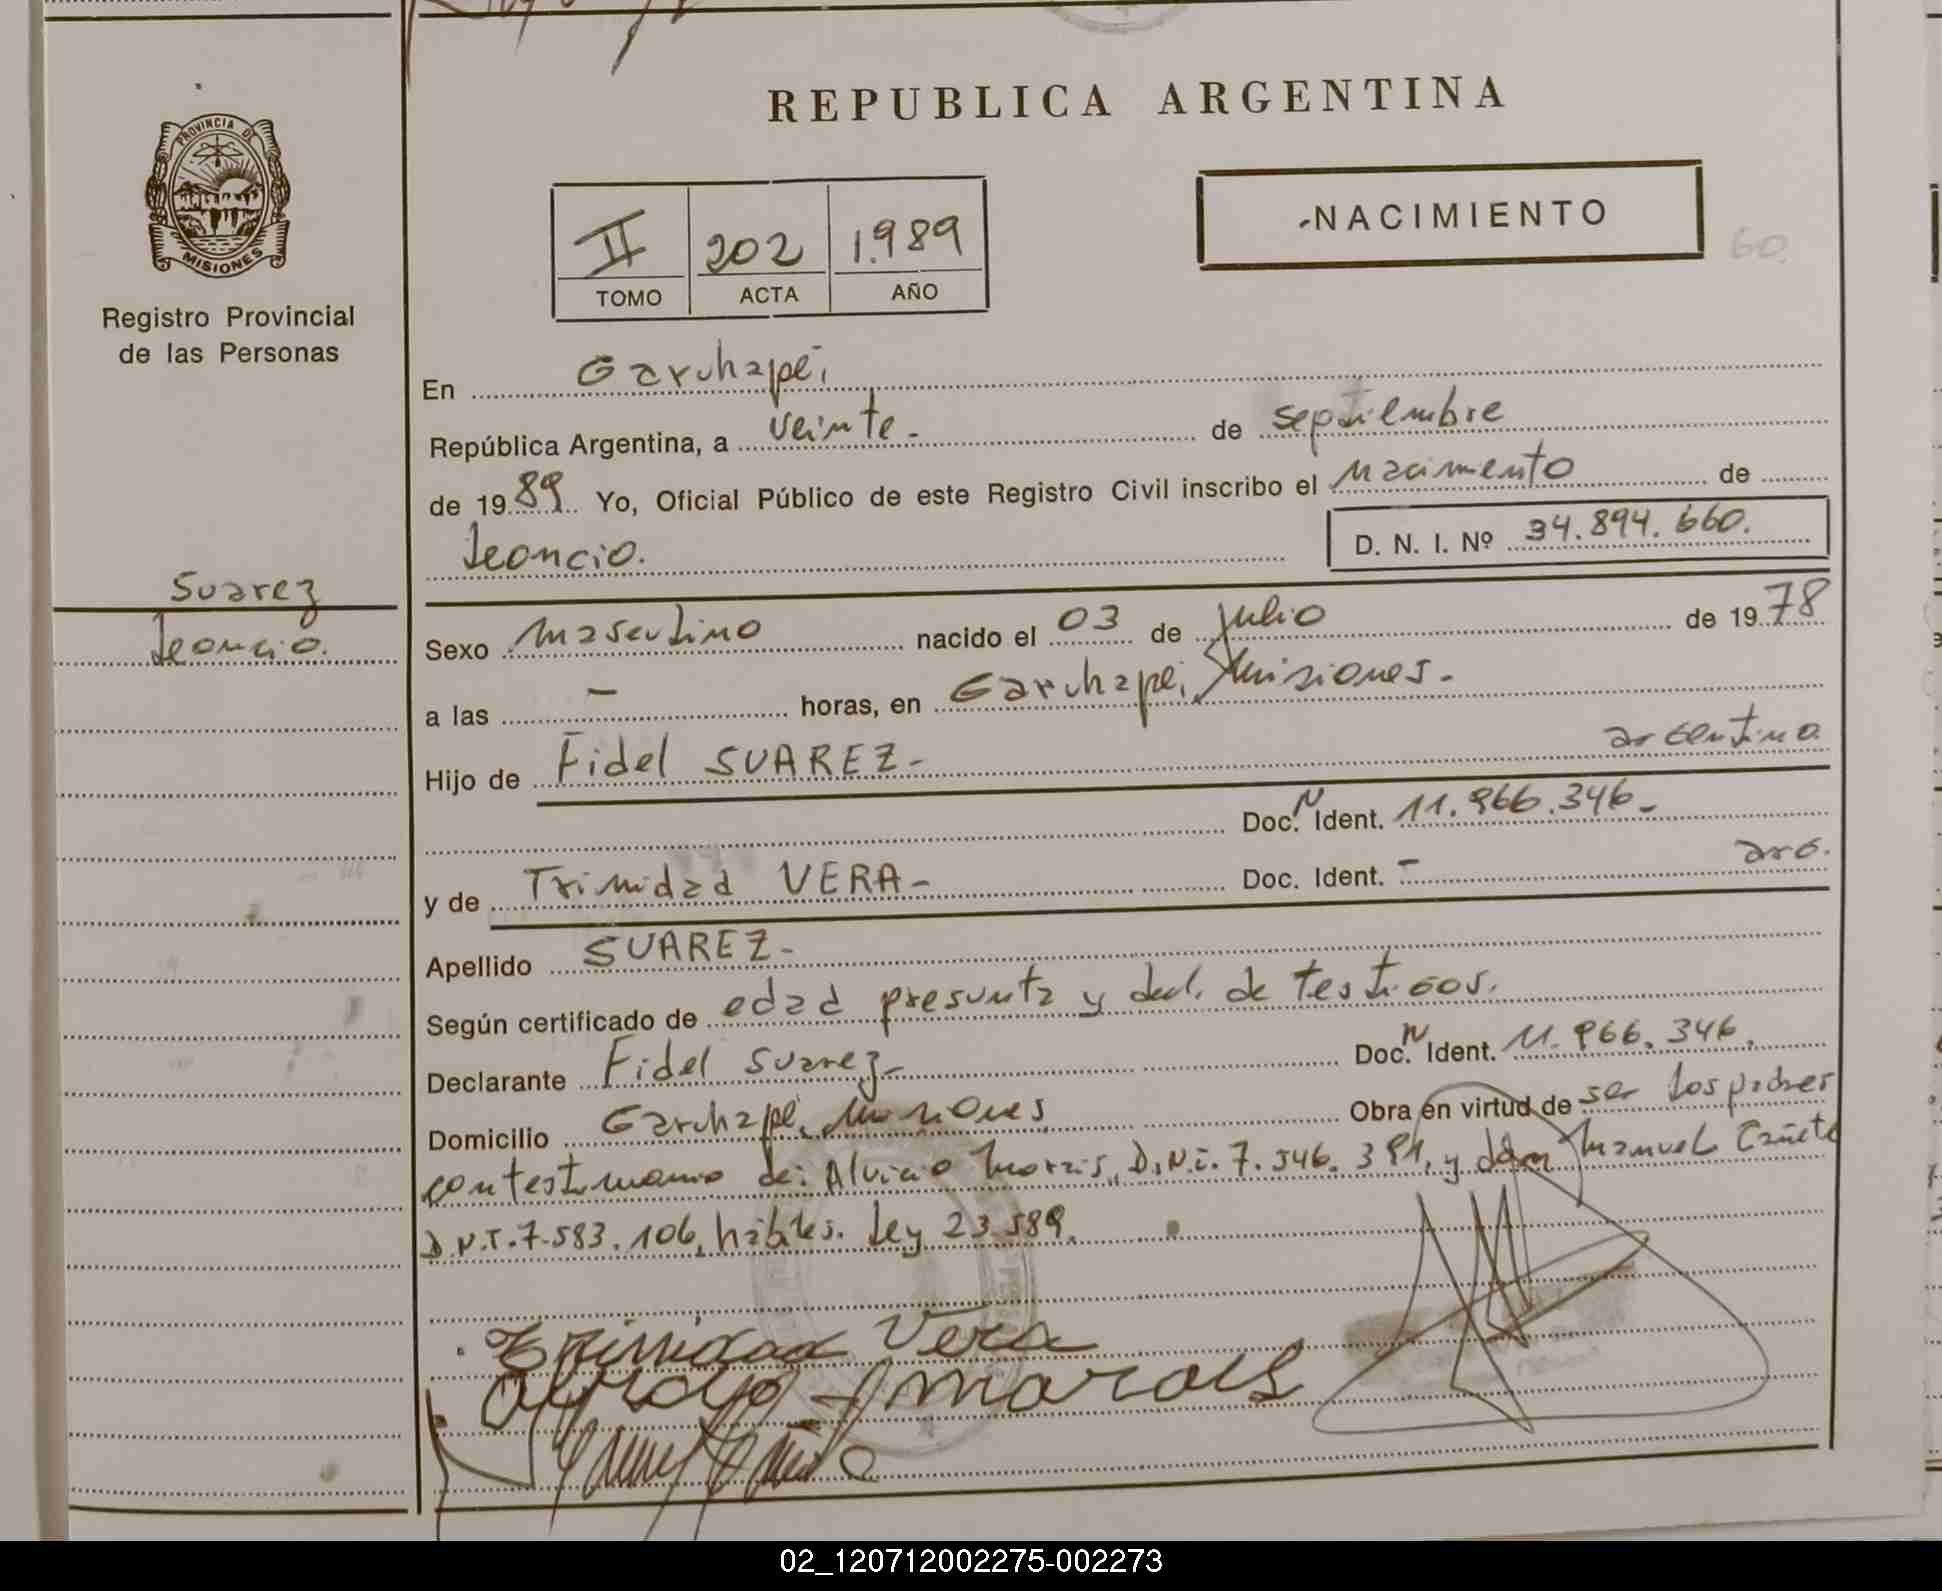 REPUBLICA ARGENTINA
PROVINCIA DE
MISIONES
Registro Provincial
de las Personas
II 202 1.989
TOMO ACTA AÑO
-NACIMIENTO
60.
En Garuhapé,
República Argentina, a veinte- de septiembre
de 1989. Yo, Oficial Público de este Registro Civil inscribo el nacimiento de
Leoncio. D. N. I. Nº 34.894.660.
Suarez
Leoncio.
Sexo masculino nacido el 03 de julio de 1978
a las - horas, en Garuhapé, Misiones.-
Hijo de Fidel SUAREZ- argentino.
Doc. N Ident. 11.966.346.-
y de Trinidad VERA- Doc. Ident. - arg.
Apellido SUAREZ-
Según certificado de edad presunta y decl. de testigos.
Declarante Fidel Suarez- Doc. N Ident. 11.966.346.
Domicilio Garuhapé, Misiones Obra en virtud de ser los padres
con testimonio de: Alvicio Morais, D.N.I. 7.546.391, y don Manuel Cañete
D.N.I. 7.583.106, hábiles. Ley 23.589.
Trinidad Vera
morais
02_120712002275-002273